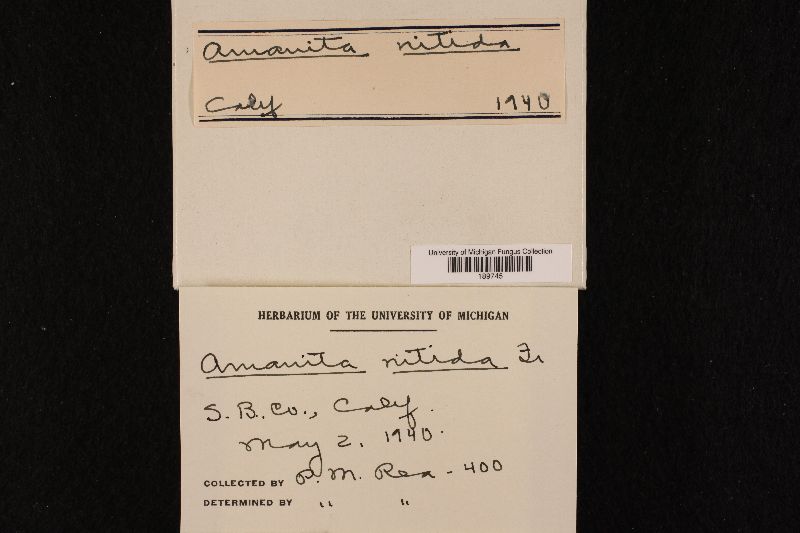 Amanita nitida
Calif 1940
University of Michigan Fungus Collection
189745
HERBARIUM OF THE UNIVERSITY OF MICHIGAN
Amanita nitida Fr
S. B. Co., Calif.
May 2, 1940.
COLLECTED BY P. M. Rea - 400
DETERMINED BY " "